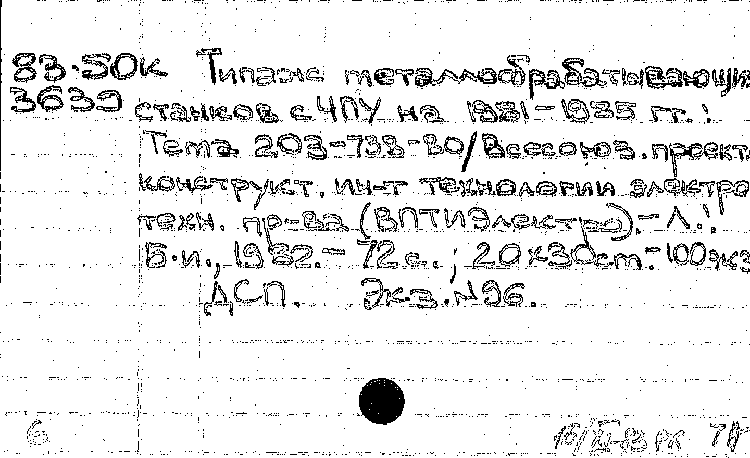 83-50к Типаж металлообрабатывающи
3639 станков с ЧПУ на 1981-1985 гг.:
Тема 203-738-80/Всесоюз. проект
конструкт. ин-т технологии электро
техн. пр-ва (ВПТИЭлектро).-Л.:
Б.и., 1982.-72с.; 20х30см.-100экз
ДСП. Экз.№96.
6 16/XI-83 РК